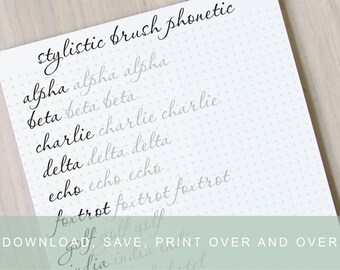 stylistic brush phonetic
alpha alpha alpha
beta beta beta
charlie charlie charlie
delta delta delta
echo echo echo
foxtrot foxtrot foxtrot
DOWNLOAD, SAVE, PRINT OVER AND OVER
golf golf golf
india hotel